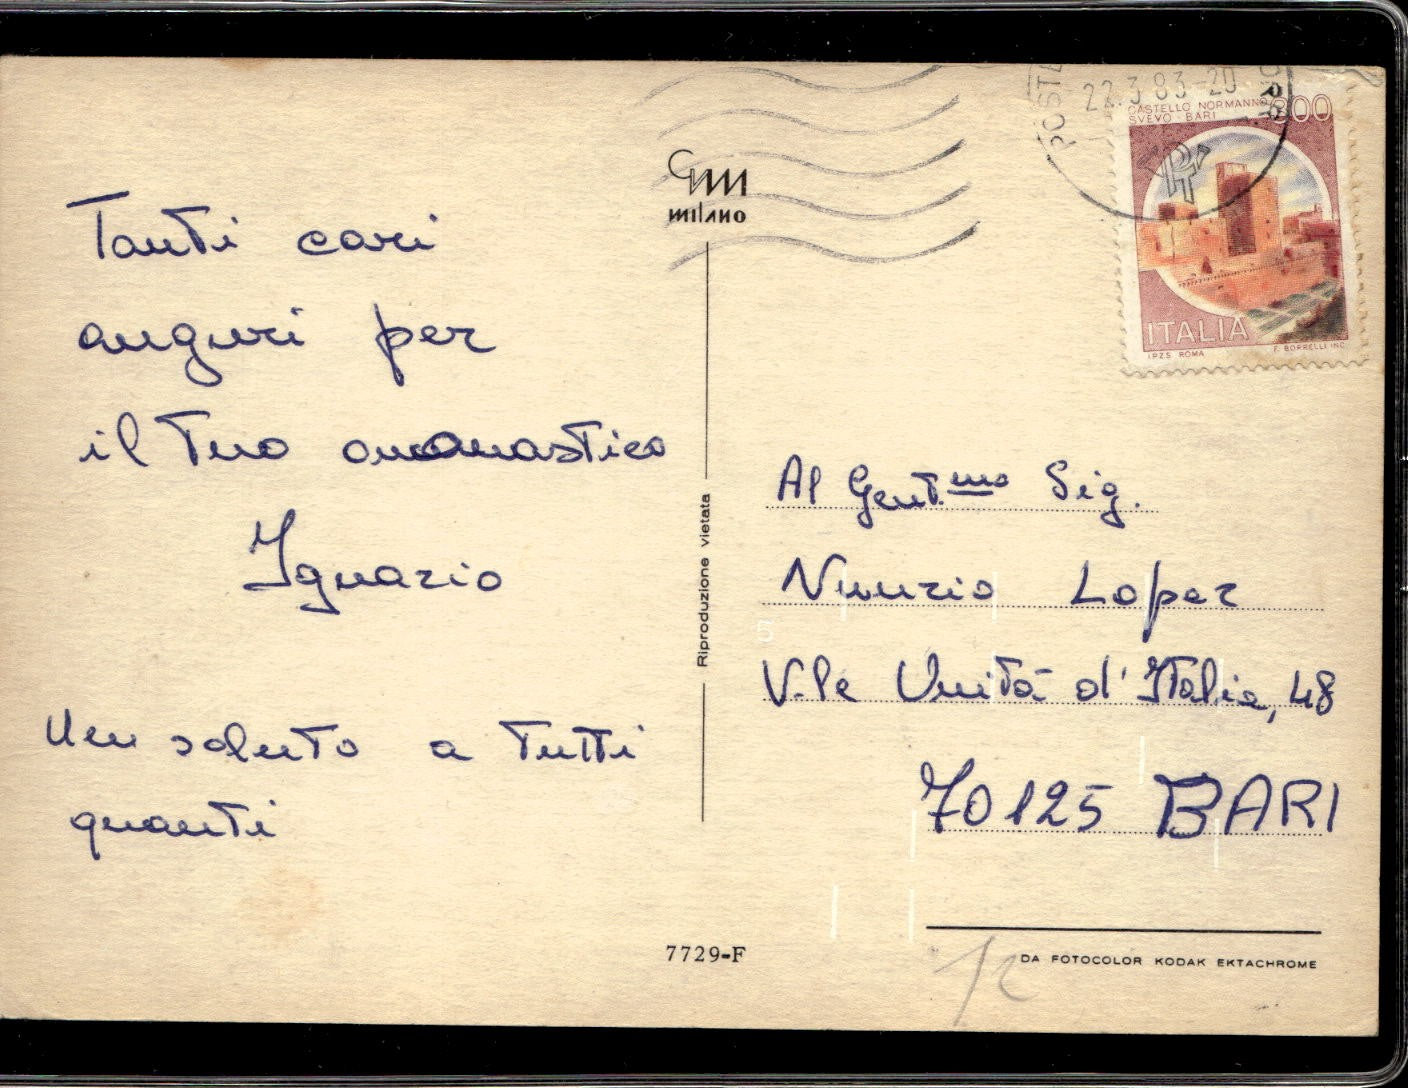 Tanti cari
auguri per
il tuo onomastico
Ignazio
Un saluto a tutti
quanti
milano
Riproduzione vietata
7729-F
22.3.83-20
CASTELLO NORMANNO
SVEVO - BARI
ITALIA
I.P.Z.S. ROMA F. BORRELLI INC.
Al Gent.mo Sig.
Nunzio Lopez
V.le Unità d'Italia, 48
70125 BARI
DA FOTOCOLOR KODAK EKTACHROME